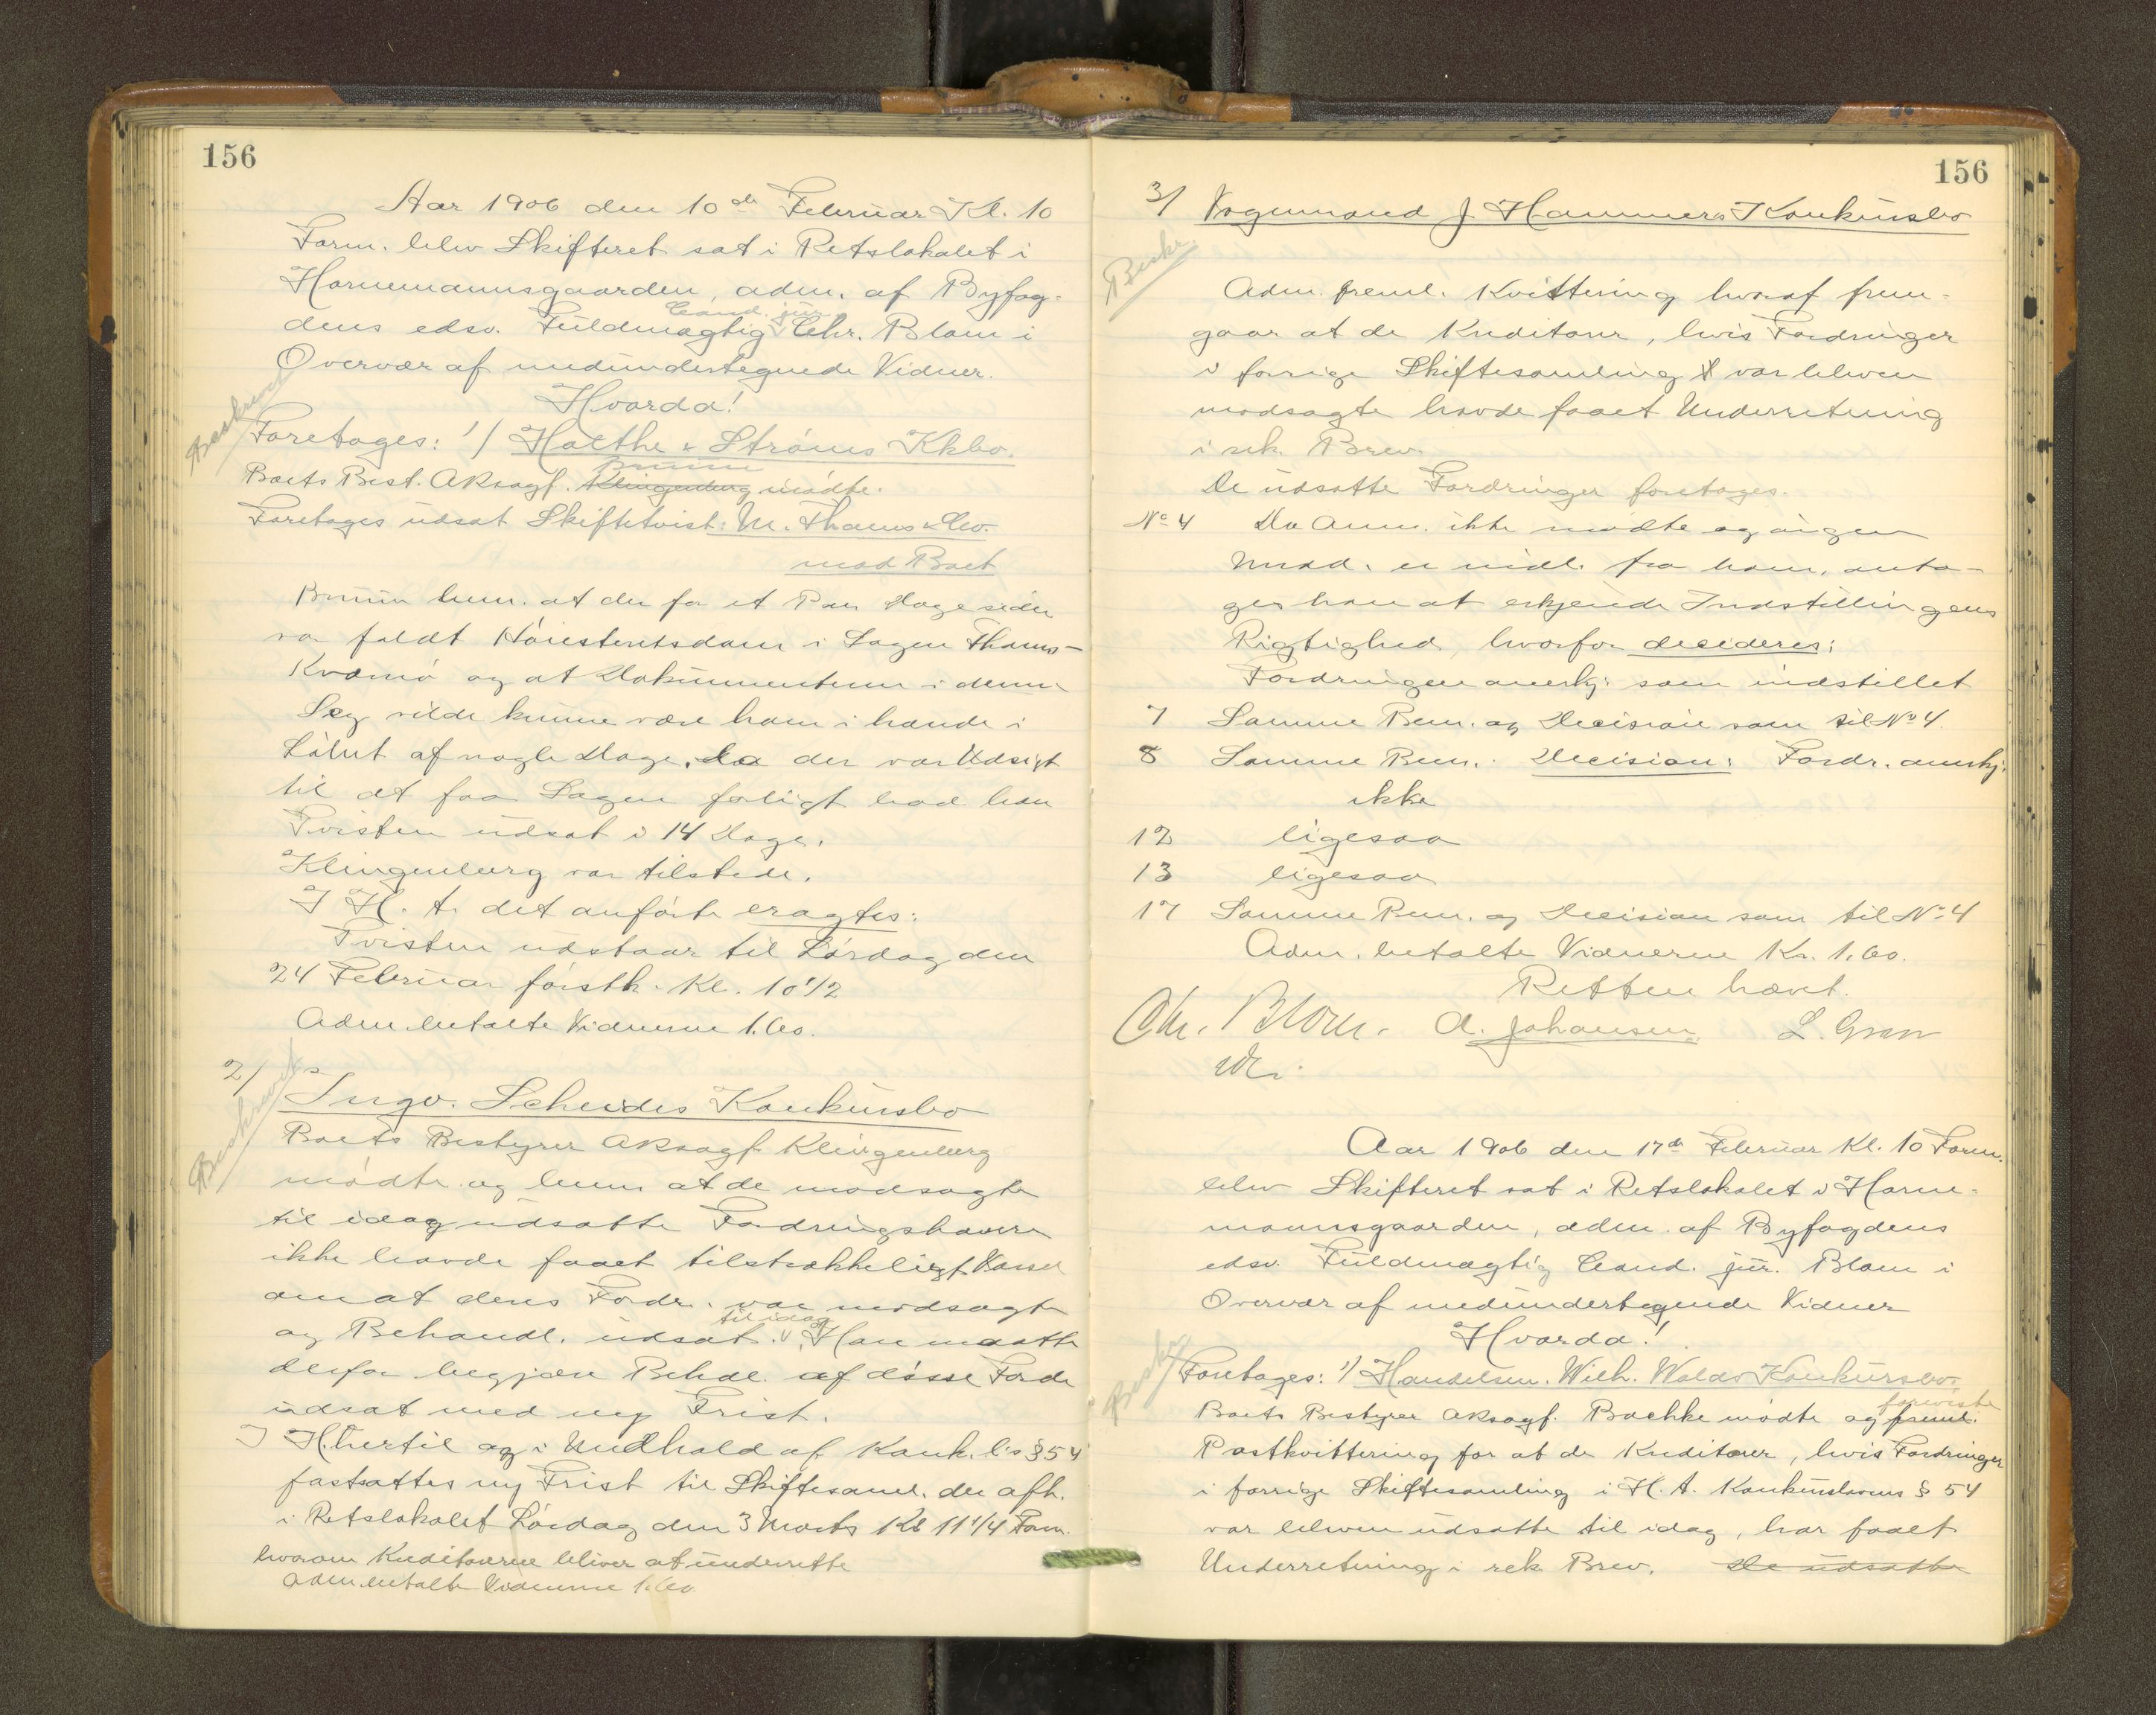 156
Aar 1906 den 10de Februar Kl. 10
Form. blev Skifteret sat i Retslokalet i
Hornemannsgaarden, adm. af Byfog-
dens edsv. Fuldmægtig Cand. jur. Chr. Blom i
Overvær af medundertegnede Vidner.
Hvorda!
Beskrevet
Foretages: 1/ Halthe & Strøms Kkbo.
Boets Best. Aksagf. Klingenberg Bruun mødte.
Foretages udsat Skiftetvist: M. Thams & Co.
mod Boet
Bruun bem. at der for et Par Dage siden
var faldt Høiesteretsdom i Sagen Thams-
Kvamø og at Dokumenterne i denne
Sag vilde kunne være ham i hænde i
Løbet af nogle Dage. Da der var Udsigt
til at faa Sagen forligt bad han
Tvisten udsat i 14 Dage.
Klingenberg var tilstede.
I H. t. det anførte eragtes:
Tvisten udstaar til Lørdag den
24 Februar førsth. Kl. 10 1/2
Adm. betalte Vidnerne 1.60.
2/ Ingv. Scheides Konkursbo
Beskrevet
Boets Bestyrer Aksagf. Klingenberg
mødte og bem. at de modsagte
til idag udsatte Fordringshavere
ikke havde faaet tilstrækkeligt Varsel
om at deres Fordr. var modsagte
og Behandl. udsat til idag. Han maatte
derfor begjære Behdl. af disse Fordr
udsat med ny Frist.
I H. hertil og i Medhold af Konk. l's § 54
fastsattes ny Frist til Skiftesaml. der afh.
i Retslokalet Lørdag den 3 Marts Kl 11 1/4 Form.
hvorom Kreditorerne bliver at underrette
Adm. betalte Vidnerne 1.60
156
3/ Vognmand J Hammers Konkursbo
Beskr
Adm. freml. Kvittering hvoraf frem-
gaar at de Kreditorer, hvis Fordringer
i forrige Skiftesamling var bleven
modsagte havde faaet Underretning
i rek. Brev.
De udsatte Fordringer foretages.
No 4 Da Anm. ikke mødte og ingen
Medd. er indl. fra ham, anta-
ges han at erkjende Indstillingens
Rigtighed, hvorfor decideres:
Fordringen anerkj. som indstillet
7 Samme Bem. og Decision som til No 4.
8 Samme Bem. Decision: Fordr. anerkj.
ikke
12 ligesaa
13 ligesaa
17 Samme Bem. og Decision som til No 4
Adm. betalte Vidnerne Kr. 1.60.
Retten hævet.
Chr. Blom. A. Johansen L. Gran
edsv.
Aar 1906 den 17de Februar Kl. 10 Form.
blev Skifteret sat i Retslokalet i Horne-
mannsgaarden, adm. af Byfogdens
edsv. Fuldmægtig Cand. jur. Blom i
Overvær af medundertegnede Vidner
Hvorda!
Beskr
Foretages: 1/ Handelsm. Wilh. Wolds Konkursbo.
Boets Bestyrer Aksagf. Bachke mødte og freml. foreviste
Postkvittering for at de Kreditorer, hvis Fordringer
i forrige Skiftesamling i H. t. Konkurslovens § 54
var bleven udsatte til idag, har faaet
Underretning i rek. Brev. De udsatte